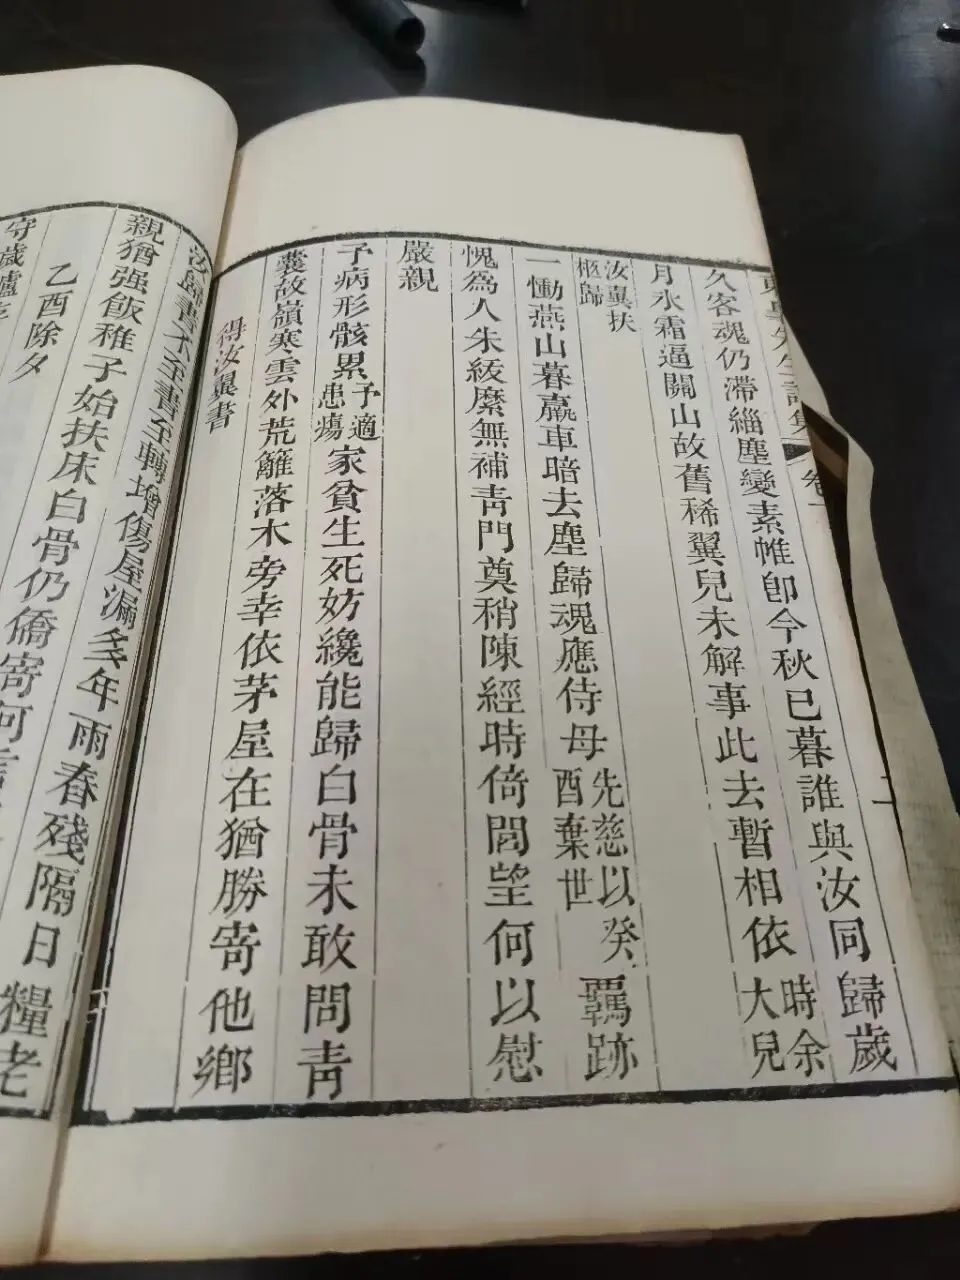 先生詩集 卷 二
久客魂仍滯緇塵變素帷卽今秋已暮誰與汝同歸歲
月氷霜逼關山故舊稀翼兒未解事此去暫相依時余大兒
汝翼扶柩歸
一慟燕山暮羸車暗去塵歸魂應侍母先慈以癸酉棄世羇跡
愧為人朱紱縻無補靑門奠稍陳經時倚閭望何以慰
嚴親
予病形骸累予適患瘍家貧生死妨纔能歸白骨未敢問靑
囊故嶺寒雲外荒籬落木旁幸依茅屋在猶勝寄他鄉
得汝翼書
汝歸書不至書至轉增傷屋漏多年雨春殘隔日糧老
親猶强飯稚子始扶床白骨仍僑寄何
乙酉除夕
守歲爐